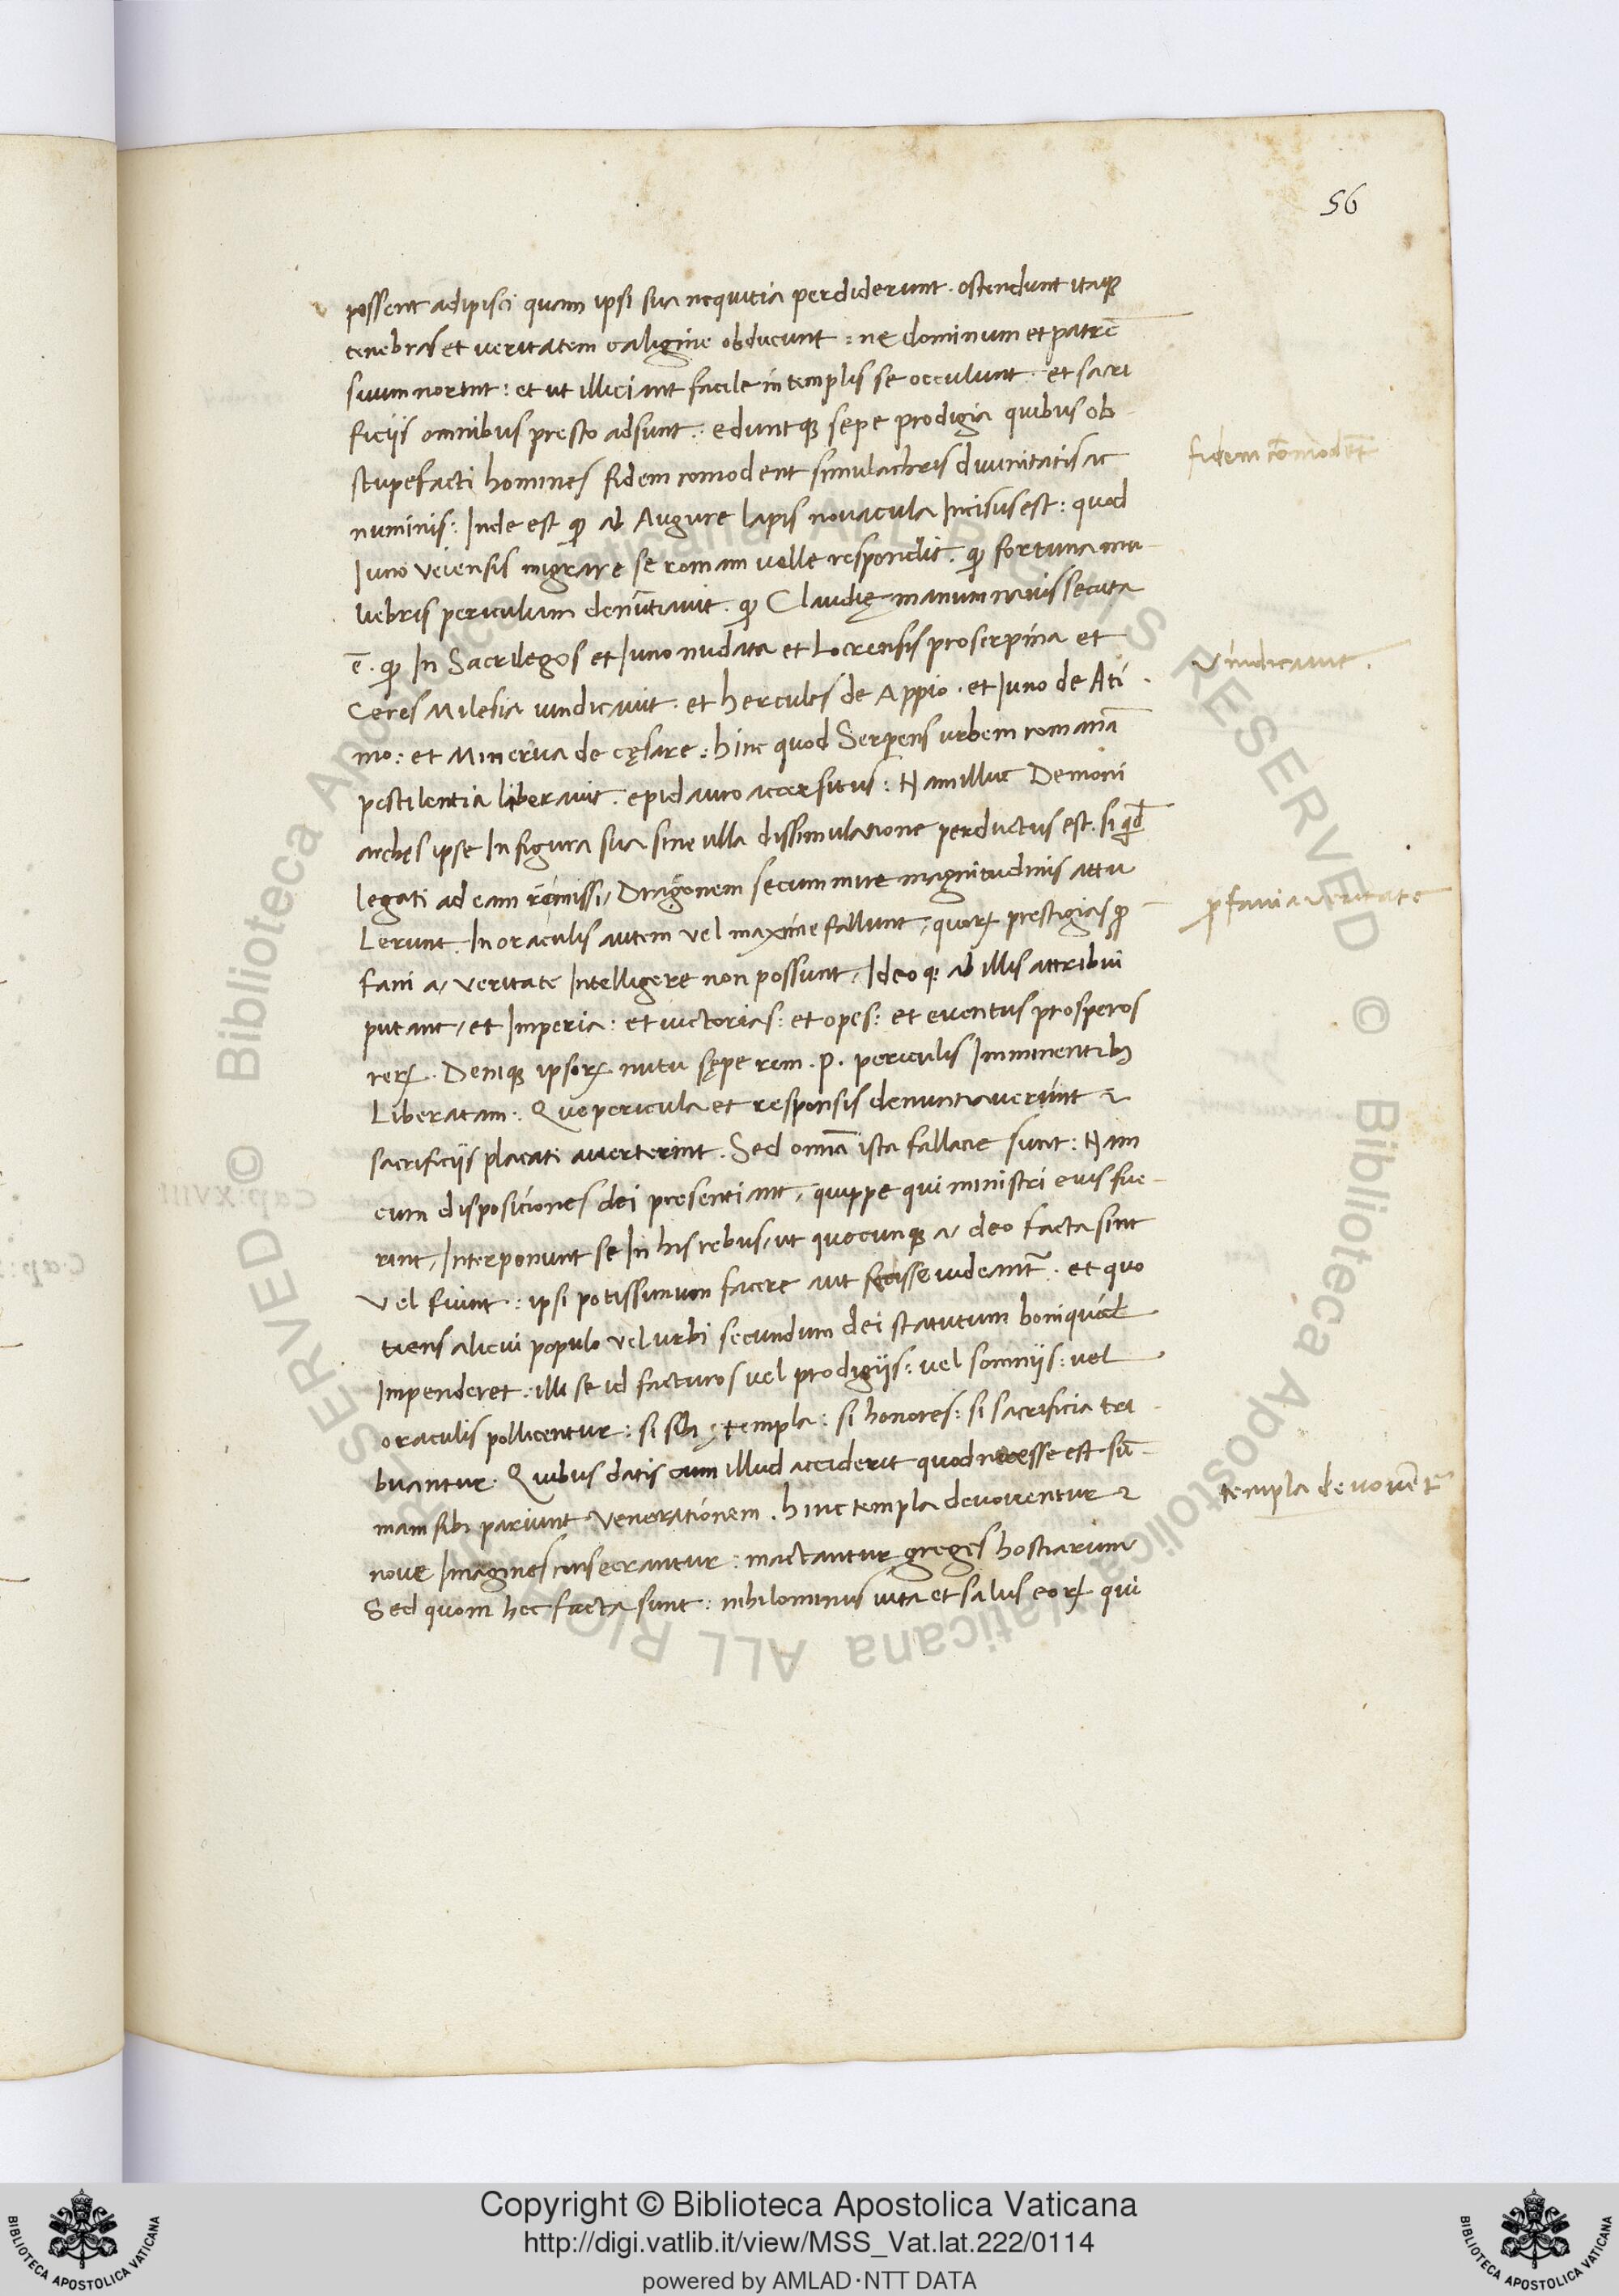 56
possent adipisci quam ipsi sua nequitia perdiderunt. ostendunt itaqꝫ
tenebras et veritatem caligine obducunt: ne dominum et patrē
suum norint: et ut illiciant facile in templis se occulunt. et sacri
ficiis omnibus presto adsunt: eduntqꝫ sepe prodigia quibus ob-
stupefacti homines fidem comodent simulachris divinitatis ac
fidem cōmodēt
numinis: Inde est qͩ ab Augure lapis novacula Incisus est: quod
Juno veiensis migrare se romam velle respondit. qͩ fortuna mu-
liebris periculum denūtiavit. qͩ Claudię manum navis secuta
ē. qͩ In Sacrilegos et Juno nudata et Locrensis proserpina et
vindicavit.
Ceres Milesia vindicavit. et hercules de Appio. et Juno de Ati-
mo: et Minerva de cęsare: hinc quod Serpens urbem romanā
pestilentia liberavit. epidauro accersitus: Nam illuc Demoni
arches ipse In figura sua sine ulla dissimulatione perductus est. siqͥd
legati ad eam rem missi, Dragonem secum mire magnitudinis attu
lerunt. In oraculis autem vel maxime fallunt, quoꝝ prestigias ꝓ-
ꝓfani a veritate
fani a, veritate Intelligere non possunt, Ideoqꝫ ab illis attribui
putant, et Imperia: et victorias: et opes: et eventus prosperos
reꝝ. Deniqꝫ ipsoꝝ nutu sępe rem. P. periculis Imminentibꝫ
Liberatam. Que pericula et responsis denuntiaverint ⁊
sacrificiis placati averterint. Sed omīa ista fallacie sunt: Nam
cum dispositiones dei presentiant, quippe qui ministri eius fue-
rint, Interponunt se In his rebus, ut quecunqꝫ a, deo facta sint
vel fiunt: ipsi potissimum facere aut fecisse videant᷑. et quo
tiens alicui populo vel urbi secundum dei statutum boni quid
Impenderet. illi se id facturos vel prodigiis: vel somniis: vel
oraculis pollicentur: si sibi templa: si honores: si sacrificia tri-
buantur. Quibus datis cum illud acciderit quod necesse est sū-
mam sibi pariunt venerationem. hinc templa devoventur ⁊
templa devovēt᷑
nove Imagines consecrantur: mactantur greges hostiarum
Sed quom hec facta sunt: nihilominus vita et salus eoꝝ qui
Copyright © Biblioteca Apostolica Vaticana
http://digi.vatlib.it/view/MSS_Vat.lat.222/0114
powered by AMLAD·NTT DATA